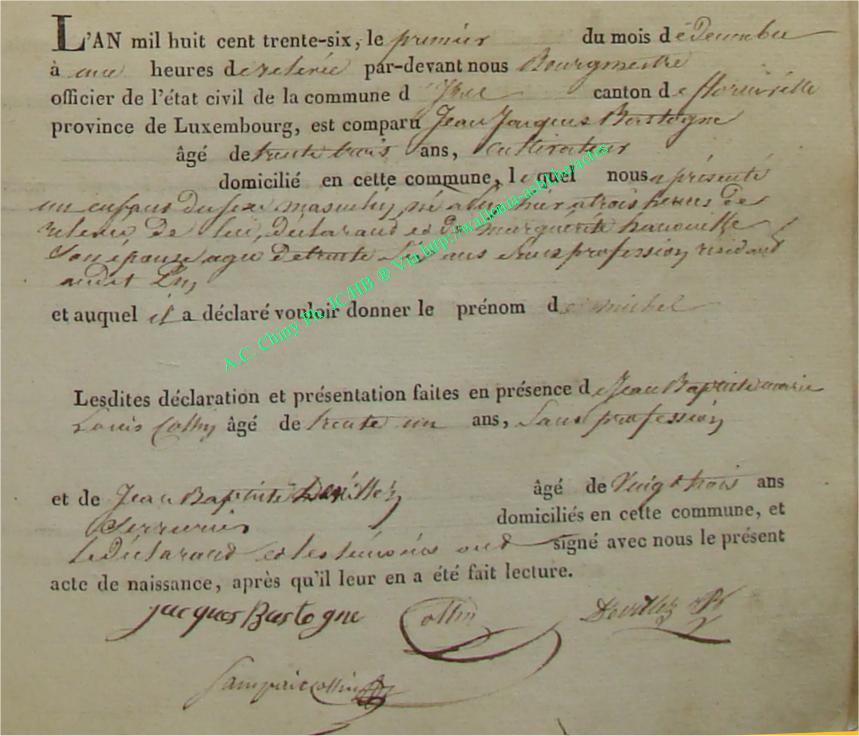 L'AN mil huit cent trente-six, le premier du mois de Decembre
à une heures de relevée par-devant nous Bourgmestre
officier de l'état civil de la commune d canton de florenville
province de Luxembourg, est comparu Jean Jacques Bastogne
âgé de trente trois ans, cultivateur
domicilié en cette commune, lequel nous a présenté
un enfant du sexe masculin, né a hier a trois heures de
relevée de lui, déclarand et de marguérite hanouille
son épouse agée de trente ans sans profession résidand
audit
et auquel il a déclaré vouloir donner le prénom de michel
Lesdites déclaration et présentation faites en présence de Jean Baptiste marie
Louis Collin âgé de trente un ans, Sans profession
et de Jean Baptiste Devillez âgé de Vingt trois ans
Serrurier domiciliés en cette commune, et
Le Déclarand et les témoins ont signé avec nous le présent
acte de naissance, après qu'il leur en a été fait lecture.
Jacques Bastogne Collin Devillez
Collin
A.C. Chiny Par JCHB ® Via http://wallonia-asbl.be/actes